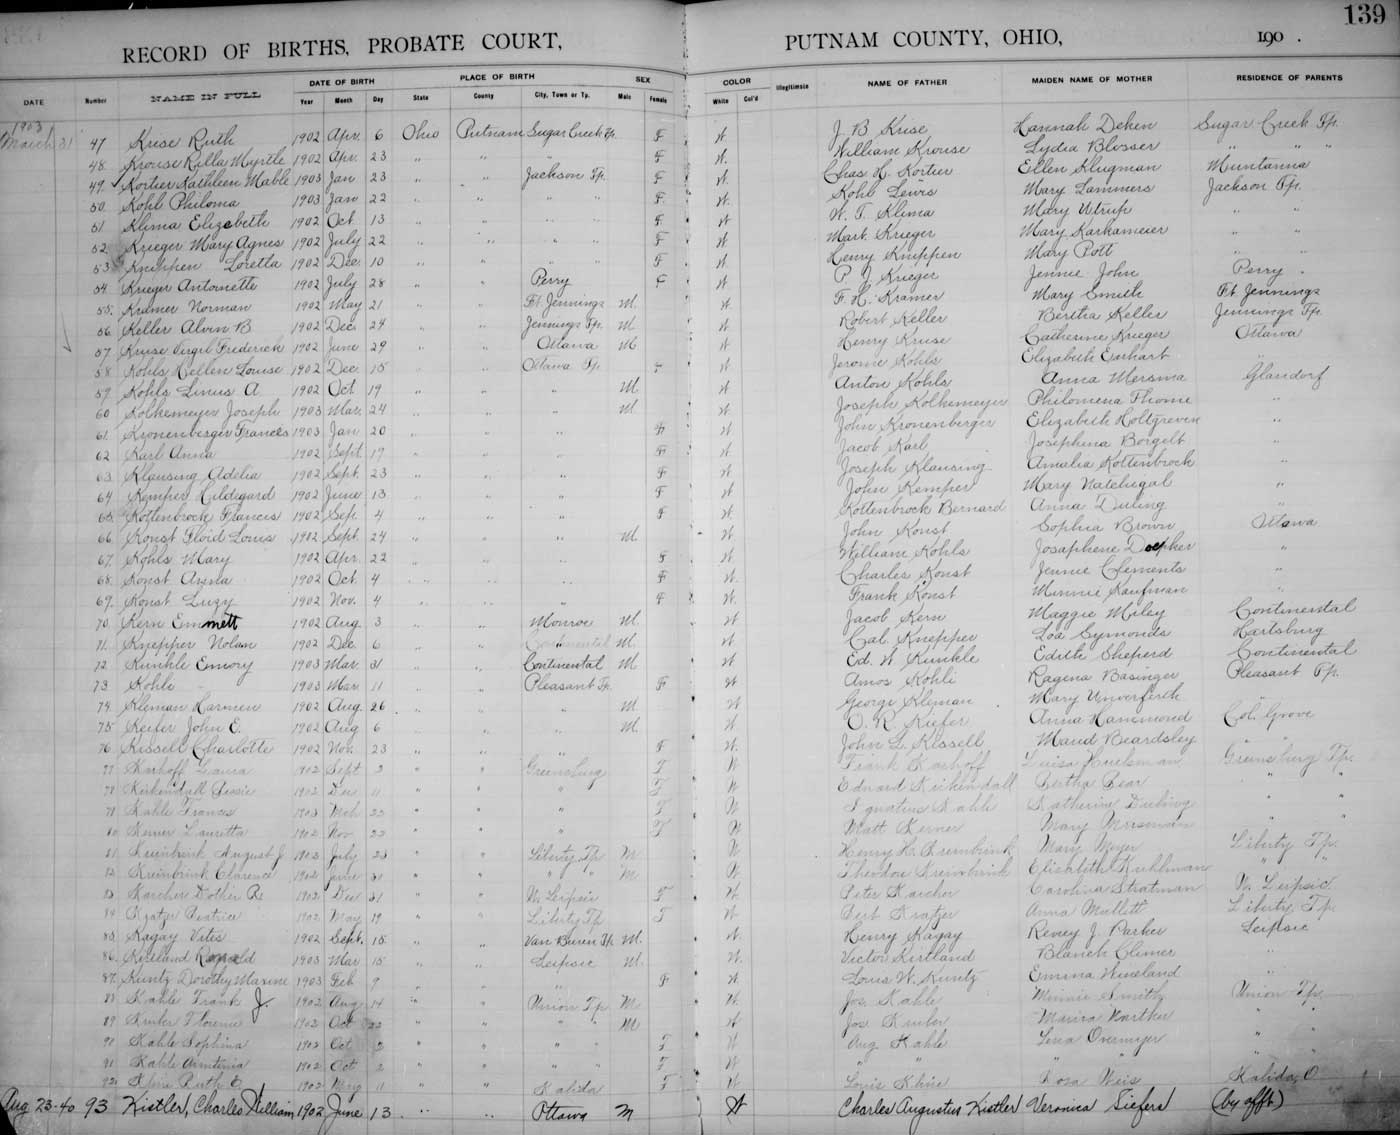 139
RECORD OF BIRTHS, PROBATE COURT, PUTNAM COUNTY, OHIO, 190 .
DATE Number NAME IN FULL DATE OF BIRTH Year Month Day PLACE OF BIRTH State County City, Town or Tp. SEX Male Female COLOR White Col'd Illegitimate NAME OF FATHER MAIDEN NAME OF MOTHER RESIDENCE OF PARENTS
1903
March 31 47 Krise Ruth 1902 Apr. 6 Ohio Putnam Sugar Creek Tp. F W. J. B. Krise Hannah Deken Sugar Creek Tp.
48. Krouse Rilla Myrtle 1902 Apr. 23 " " F W. William Krouse Lydia Blosser " " "
49. Kortier Kathleen Mable 1903 Jan 23 " " Jackson Tp. F W. Chas H. Kortier Ellen Klugman Muntanna
50. Kohl Philoma 1903 Jan 22 " " " " F W. Kohl Lewis Mary Lammers Jackson Tp.
51. Klima Elizebeth 1902 Oct 13 " " " " F W. W. F. Klima Mary Utrup " "
52. Krieger Mary Agnes 1902 July 22 " " " " F W. Mart. Krieger Mary Karhameier " "
53. Knippen Loretta 1902 Dec. 10 " " " " F W. Henry Knippen Mary Pott " "
54. Krieger Antoinette 1902 July 28 " " Perry F W. P. J. Krieger Jennie John Perry
55. Kramer Norman 1902 May 21 " " Ft. Jennings M. W. F. H. Kramer Mary Smith Ft. Jennings
56. Keller Alvin B 1902 Dec 24 " " Jennings Tp. M W. Robert Keller Bertha Keller Jennings Tp.
57. Kruse Virgil Frederick 1902 June 29 " " Ottawa M W. Henry Kruse Catherine Krieger Ottawa
58. Kohls Hellen Louise 1902 Dec. 15 " " Ottawa Tp. F W. Jerome Kohls Elizabeth Earhart "
59. Kohls Linus A. 1902 Oct 19 " " " M. W. Anton Kohls Anna Mersma Glandorf
60 Kolhemeyer Joseph 1903 Mar. 24 " " " M. W. Joseph Kolhemeyer Philomena Thome "
61. Kronenberger Frances 1903 Jan 20 " " " F W. John Kronenberger Elizabeth Holtgreven "
62 Karl Anna 1902 Sept 17 " " " F W. Jacob Karl Josephina Borgelt "
63. Klausing Adelia 1902 Sept. 23 " " " F W. Joseph Klausing Amalia Kottenbrock "
64 Kemper Hildegard 1902 June 13 " " " F W. John Kemper Mary Natchugal "
65. Kottenbrock Francis 1902 Sep. 4 " " " F W. Kottenbrock Bernard Anna Duling "
66. Konst Floid Louis 1902 Sept. 24 " " " M W. John Konst Sophia Brown Ottawa
67. Kohls Mary 1902 Apr. 22 " " " F W. William Kohls Josaphene "
68. Konst Anna 1902 Oct. 4 " " " F W. Charles Konst Jennie Clements "
69. Konst Luzy 1902 Nov. 4 " " " F W. Frank Konst Minnie Kaufman "
70. Kern Emmett 1902 Aug. 3 " " Monroe M. W Jacob Kern Maggie Miley Continental
71. Knepper Nolan 1902 Dec. 6 " " Continental M. W Cal. Knepper Loa Symonds Hartsburg
72. Kunkle Emory 1903 Mar. 31 " " Continental M W Ed. W Kunkle Edith Sheperd Continental
73. Kohli 1903 Mar. 11 " " Pleasant Tp. F W Amos Kohli Ragena Basinger Pleasant Tp.
74. Kleman Harmen 1902 Aug. 26 " " " M W George Kleman Mary Unverferth "
75. Keifer John E. 1902 Aug 6 " " " M. W O. R. Kiefer Anna Hammond Col. Grove
76. Kissell Charlotte 1902 Nov. 23 " " " F W. John L. Kissell Maud Beardsley " "
77 Karhoff Laura 1902 Sept 3 " " Greensburg F W Frank Karhoff Luisa Huckman Greensburg Tp.
78 Kirkendall Bessie 1902 Dec 11 " " " F W Edward Kirkendall Bertha Bear " "
79 Kahle Frances 1903 Mch 22 " " " F W Ignatius Kahle Katherine Duling " "
80 Kerner Lauretta 1902 Nov. 22 " " " F W Matt Kerner Mary " "
81 Kreinbrink August J 1902 July 23 " " Liberty Tp M W Henry H. Kreinbrink Mary Meyer Liberty Tp.
82 Kreinbrink Clarence 1902 June 21 " " " " M W Theodore Kreinbrink Elizabeth Kuhlman " "
83 Karcher 1902 Dec 21 " " W. Leipsic F W. Peter Karcher Carolina Stratman W. Leipsic
84 Kratzer Beatrice 1902 May 19 " " Liberty Tp F W Bert Kratzer Anna Mullett Liberty Tp.
85. Kagay Vitis 1902 Sept. 15 " " Van Buren Tp. M. W. Henry Kagay Reney J. Parker Leipsic
86. Kirtland Ronald 1903 Mar 15 " " Leipsic M. W. Victor Kirtland Blanch Climer "
87. Kuntz Dorothy Maxine 1903 Feb 9 " " " F W. Louis W. Kuntz Emma Wineland "
88 Kahle Frank J. 1902 Aug 14 " " Union Tp M W. Jos Kahle Minnie Smith Union Tp.
89 Florence 1902 Oct 22 " " " M W Jos Marisa " "
90 Kahle Sophina 1902 Oct 2 " " " " F W Aug Kahle Lena Overmyer " "
91 Kahle 1902 Oct 2 " " " " F W " " " " " "
92 Kline Ruth E. 1902 May 11 " " Kalida F W Louis Kline Rosa Weis Kalida, O
Aug 23-40 93 Kistler, Charles William, 1902 June 13 " " Ottawa M W Charles Augustus Kistler Veronica Siefers (by afft)